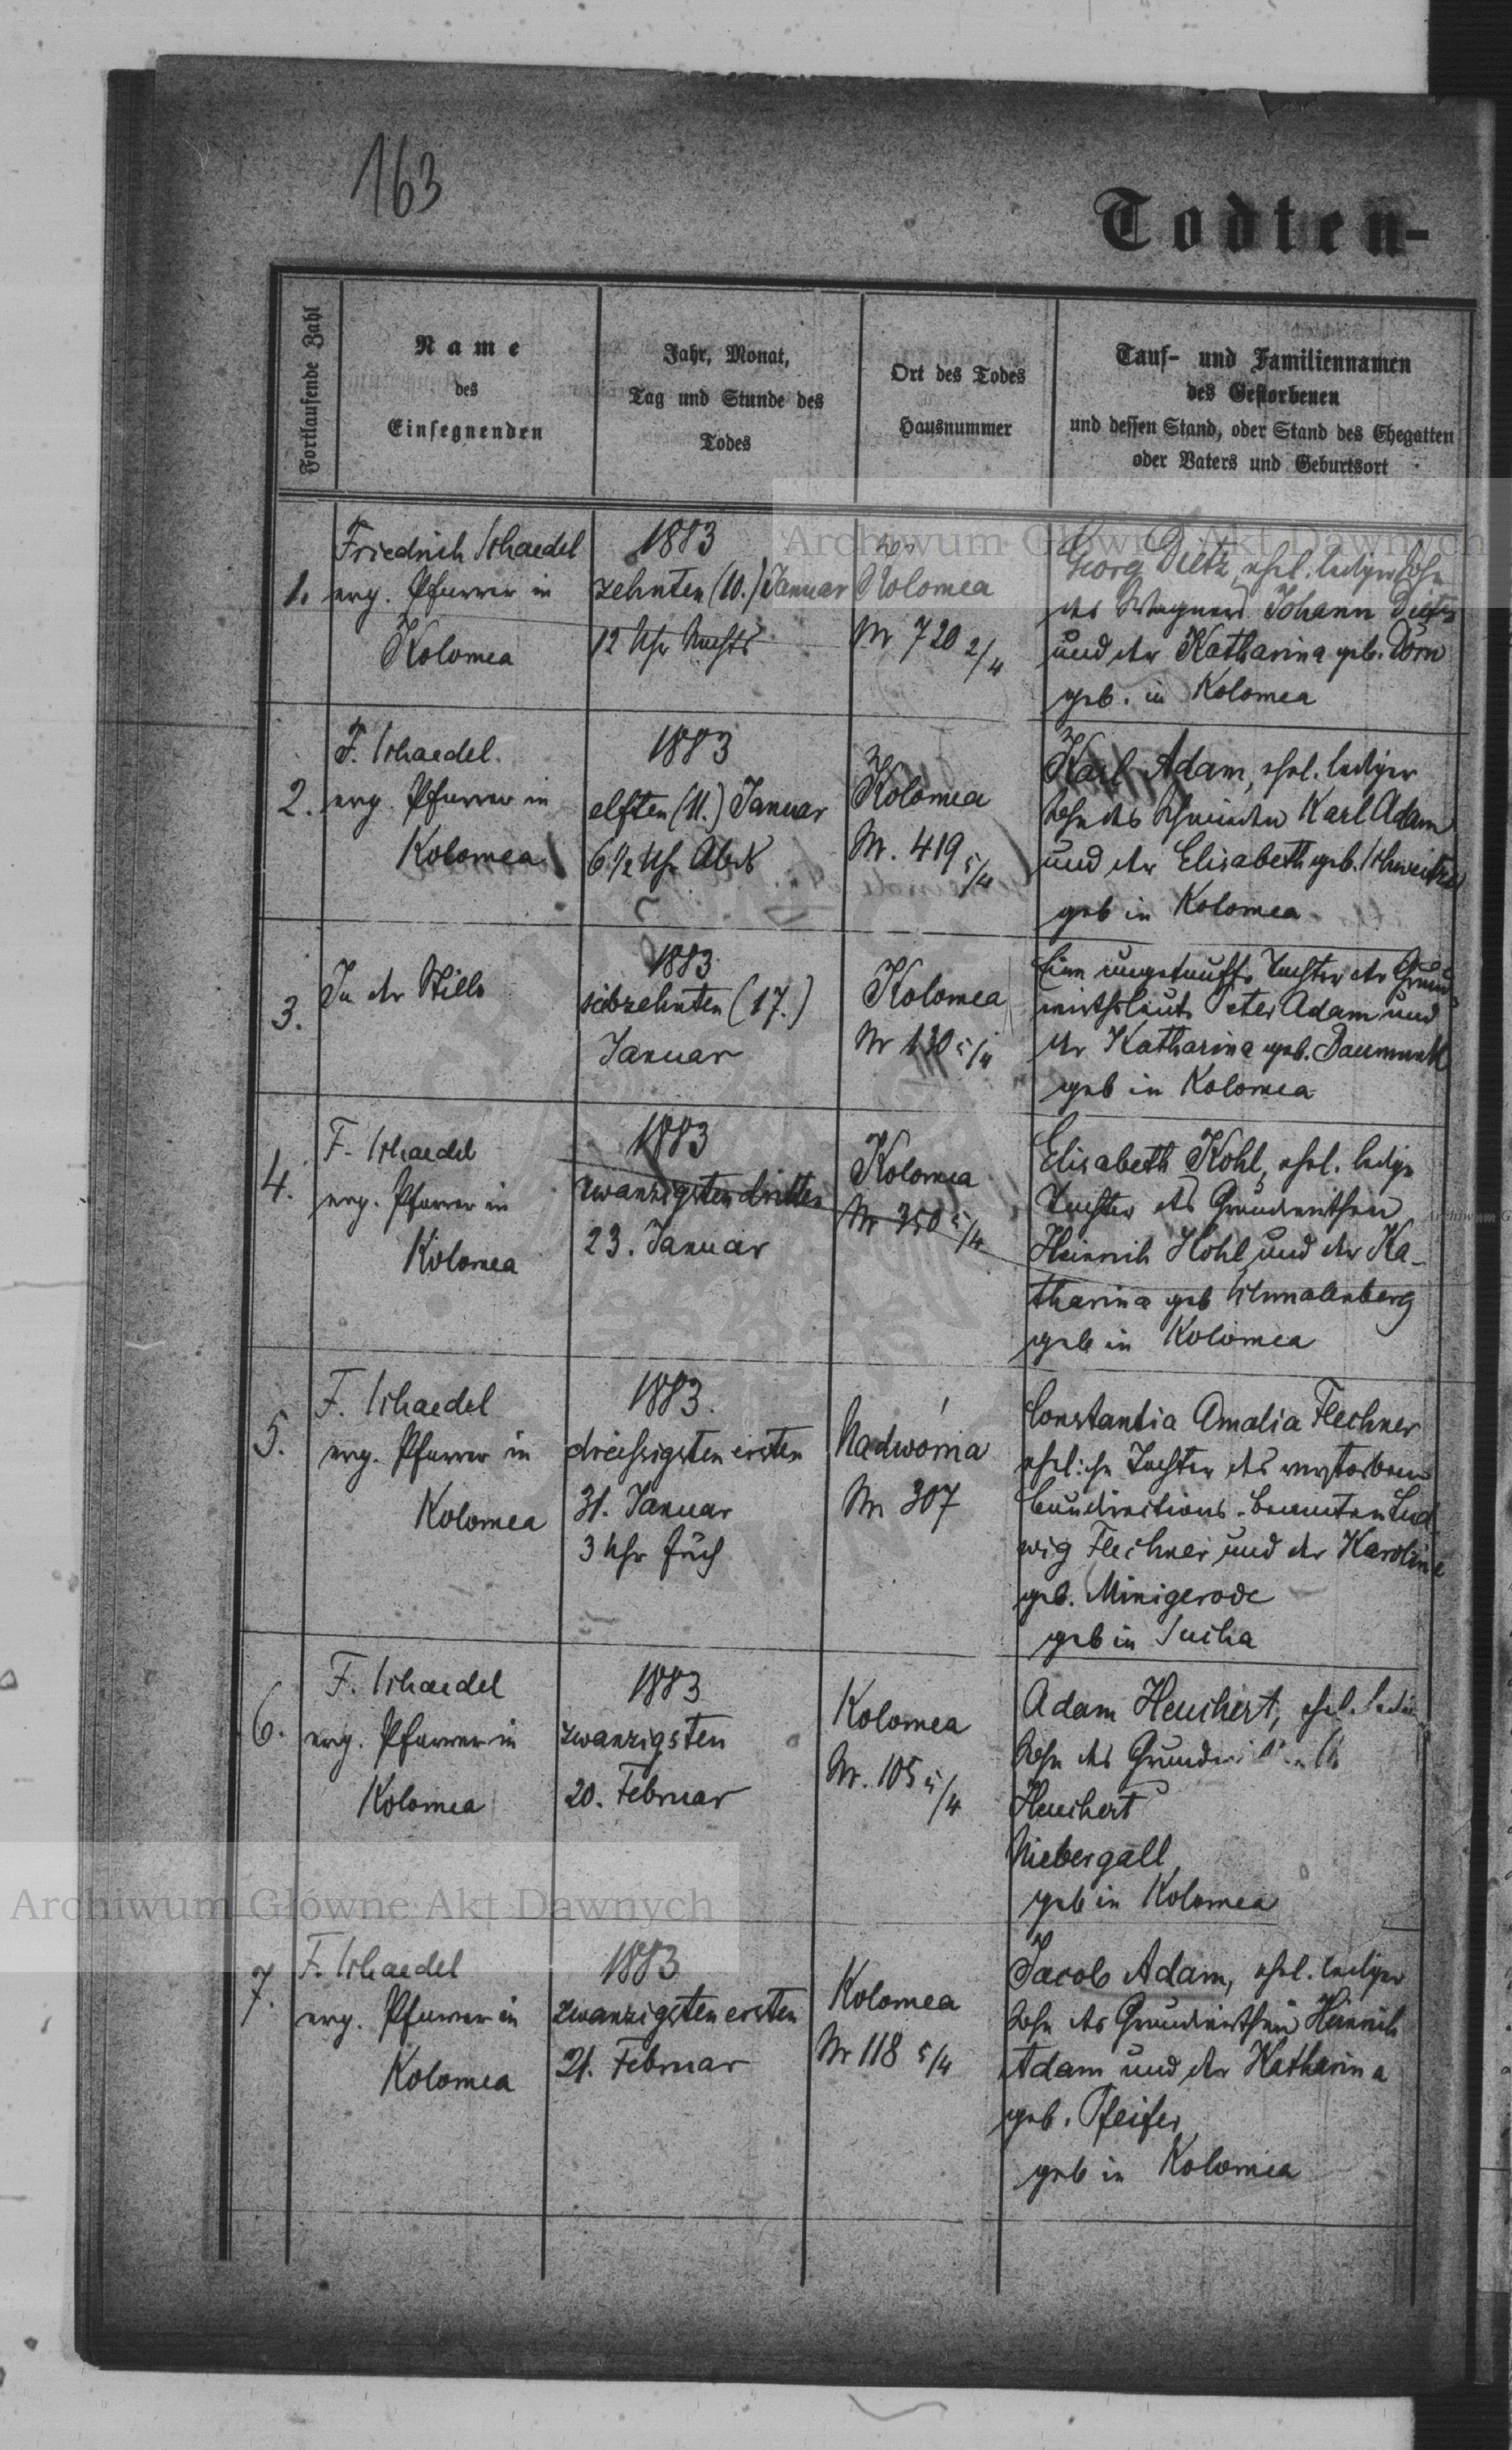 163
Todten-
Fortlaufende Zahl
Name
des
Einsegnenden
Jahr, Monat,
Tag und Stunde des
Todes
Ort des Todes
Hausnummer
Tauf- und Familiennamen
des Gestorbenen
und dessen Stand, oder Stand des Ehegatten
oder Vaters und Geburtsort
1.
Friedrich Schaedel
evg. Pfarrer in
Kolomea
1883
zehnten (10.) Januar
12 Uhr Nachts
Kolomea
Nr 720 2/4
Georg Dietz, ehel. lediger Sohn
des Wagners Johann Dietz
und der Katharina geb. Dorn
geb. in Kolomea
2.
F. Schaedel.
evg. Pfarrer in
Kolomea
1883
elften (11.) Januar
6 1/2 Uhr Abds
Kolomea
Nr. 419 5/4
Karl Adam, ehel. lediger
Sohn des Karl Adam
und der Elisabeth geb. Schweitzer
geb in Kolomea
3.
In der Stille
1883
siebzehnten (17.)
Januar
Kolomea
Nr 130 5/4
Eine ungetaufte Tochter der Grund-
wirthsleute Peter Adam und
der Katharina geb. Daumunk
geb in Kolomea
4.
F. Schaedel
evg. Pfarrer in
Kolomea
1883
zwanzigsten dritten
23. Januar
Kolomea
Nr 350 5/4
Elisabeth Kohl, ehel. ledige
Tochter des Grundwirthen
Heinrich Kohl und der Ka-
tharina geb Schmalenberg
geb in Kolomea
5.
F. Schaedel
evg. Pfarrer in
Kolomea
1883.
dreissigsten ersten
31. Januar
3 Uhr früh
Nadworna
Nr 307
Constantia Amalia Flechner
eheliche Tochter des verstorbenen
Baudirections-Beamten Lud-
wig Flechner und der Karoline
geb. Minigerode
geb in Sucha
6.
F. Schaedel
evg. Pfarrer in
Kolomea
1883
zwanzigsten
20. Februar
Kolomea
Nr. 105 5/4
Adam Heuchert, ehel.
Sohn des
Heuchert
Niebergall,
geb in Kolomea
7.
F. Schaedel
evg. Pfarrer in
Kolomea
1883
zwanzigsten ersten
21. Februar
Kolomea
Nr 118 5/4
Jacob Adam, ehel. lediger
Sohn des Grundwirthen Heinrich
Adam und der Katharina
geb. Pfeifer
geb in Kolomea
Archiwum Główne Akt Dawnych
Archiwum Główne Akt Dawnych